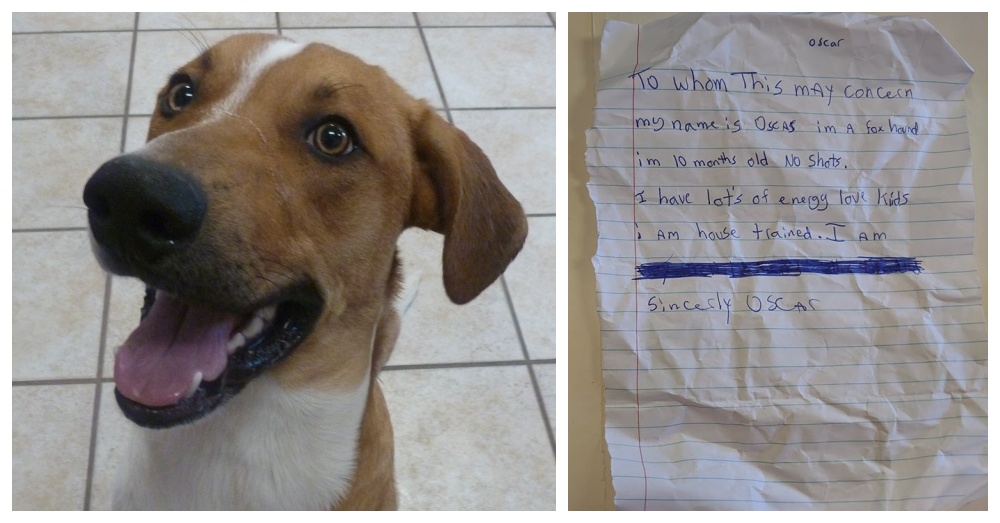 oscar
To whom This mAy concern
my name is OSCAS im A fox hound
im 10 months old No shots.
I have lot's of energy love kids
i Am house trained. I Am
Sincerly OSCAr